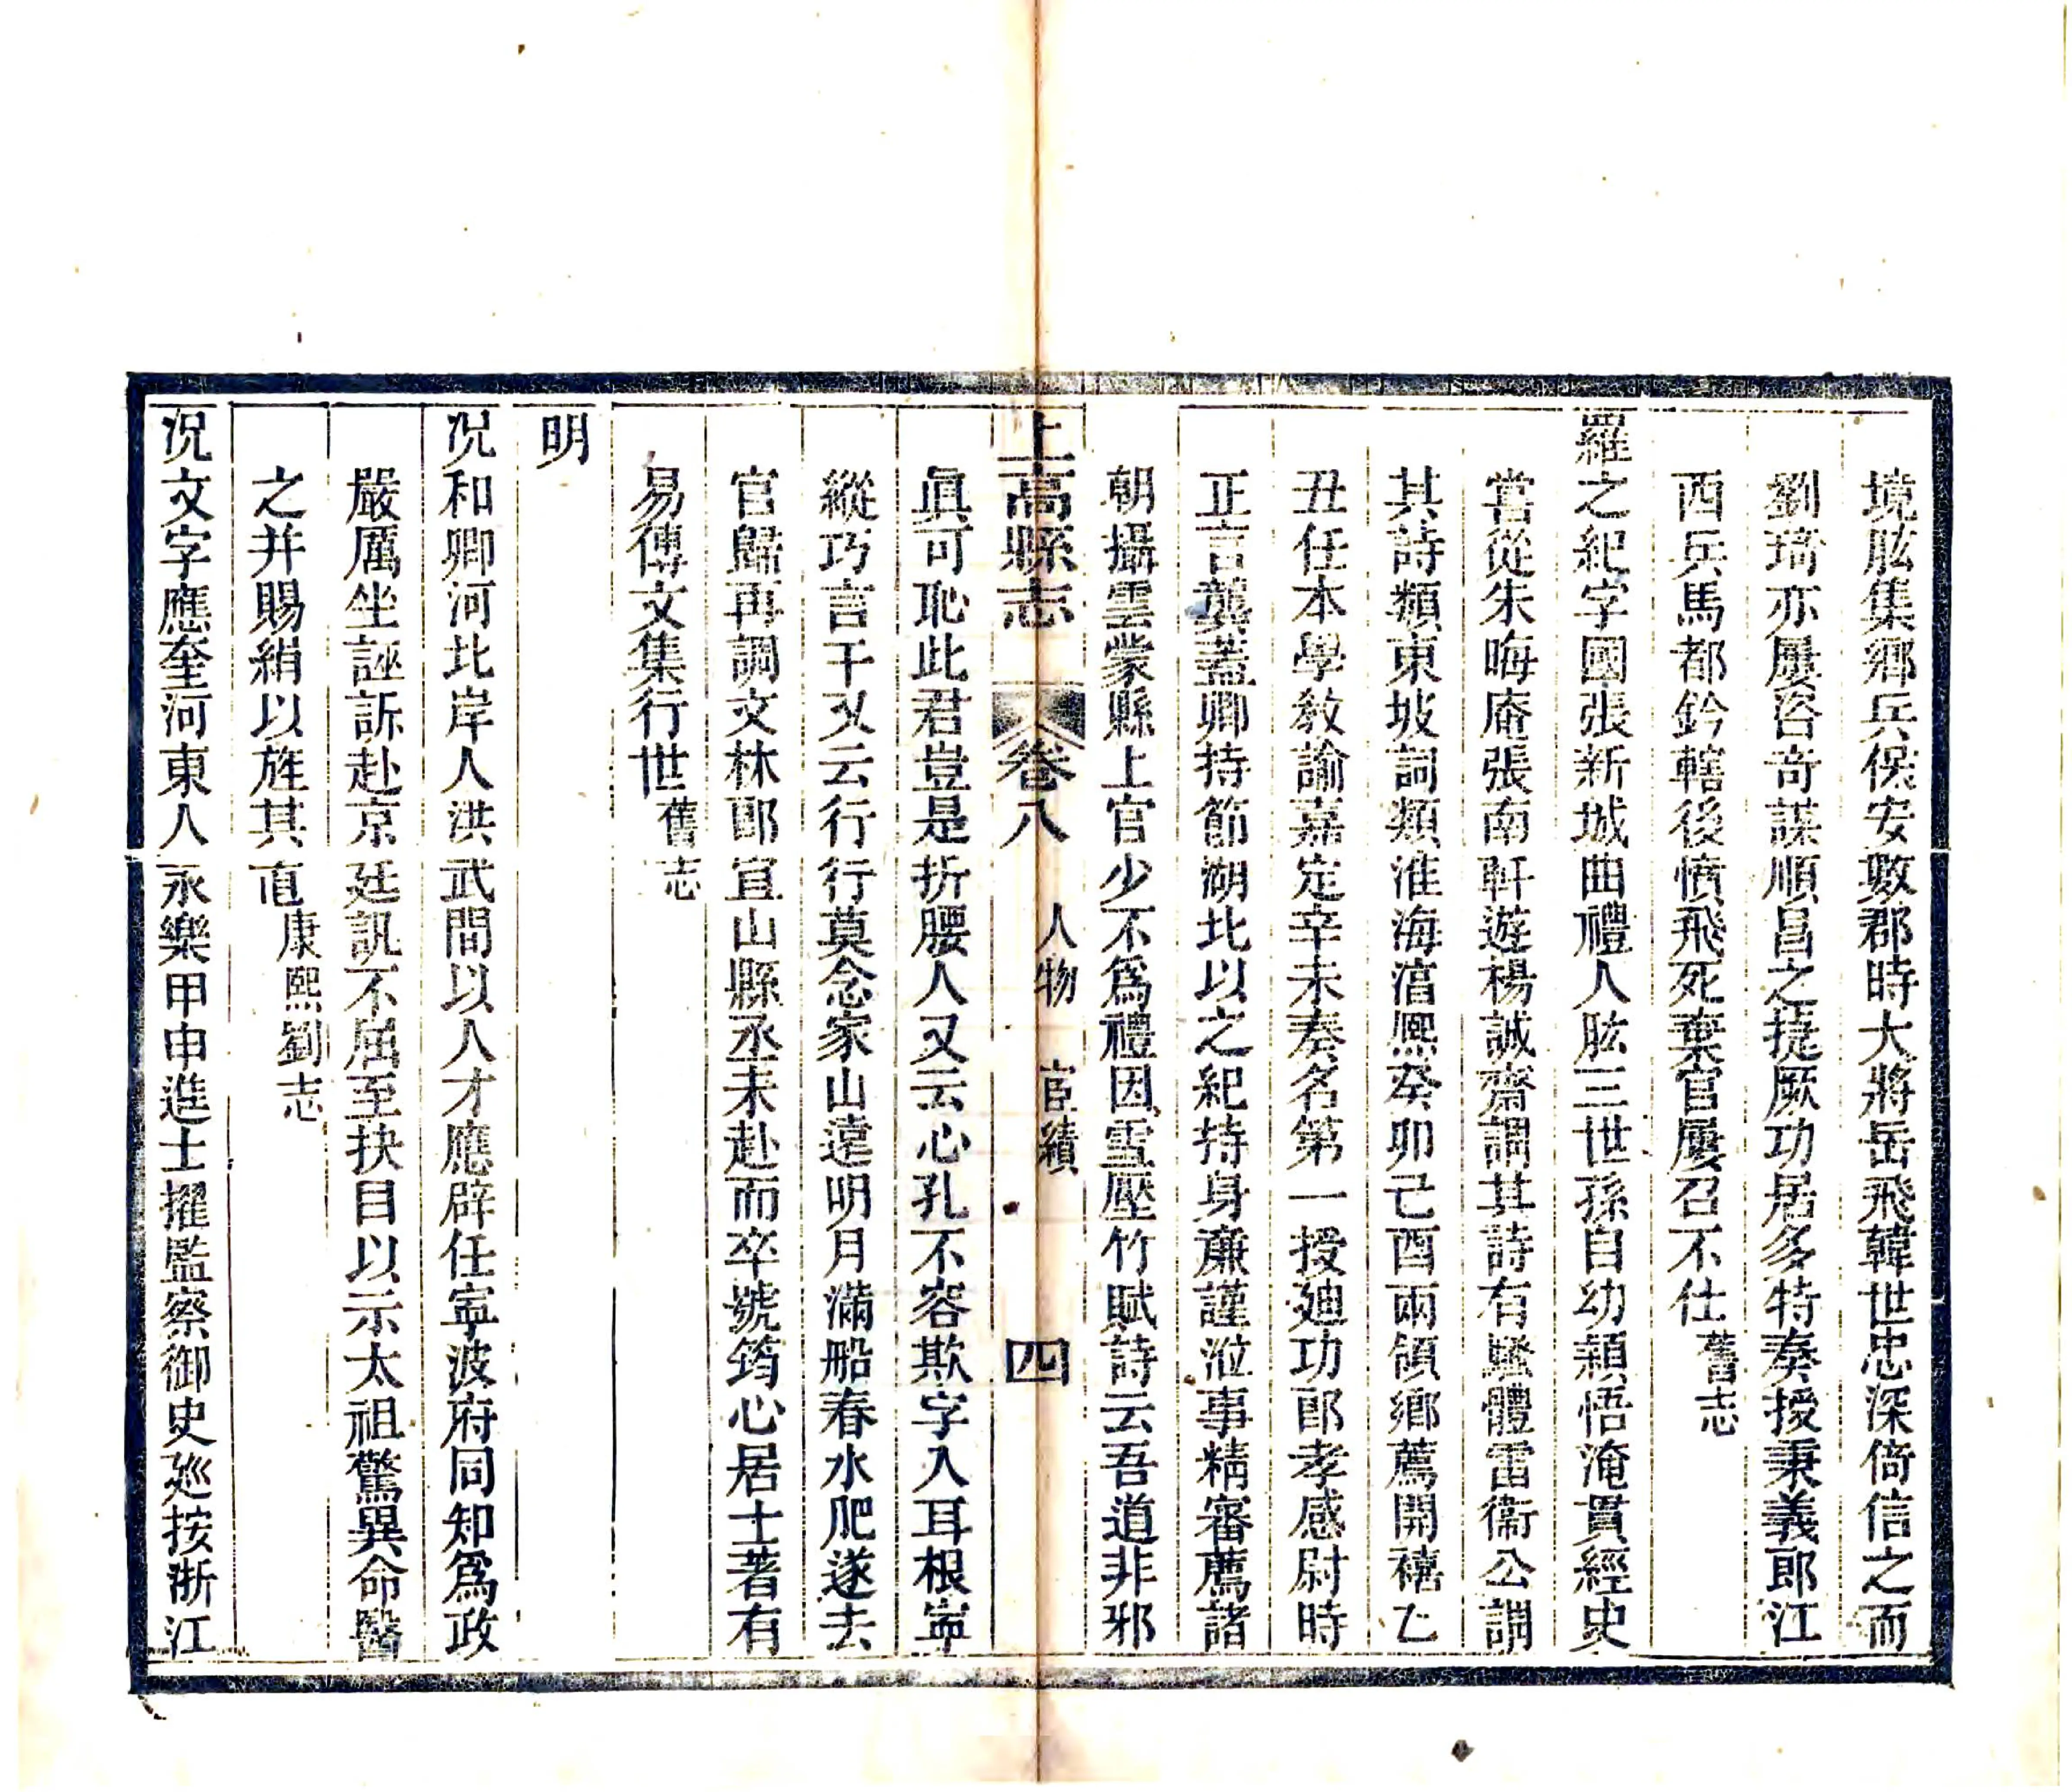 境肱集鄉兵保安數郡時大將岳飛韓世忠深倚信之而
劉琦亦屢咨奇謀順昌之捷厥功居多特奏授秉義郎江
西兵馬都鈐轄後憤飛死棄官屢召不仕舊志
羅之紀字國張新城曲禮人肱三世孫自幼穎悟淹貫經史
嘗從朱晦庵張南軒遊楊誠齋謂其詩有騷體雷衞公謂
其詩類東坡詞類淮海湻熙癸卯己酉兩領鄉薦開禧乙
丑任本學敎諭嘉定辛未奏名第一授廸功郎孝感尉時
正言龔蓋卿持節湖北以之紀持身廉謹涖事精審薦諸
朝攝雲夢縣上官少不爲禮因雪壓竹賦詩云吾道非邪
眞可恥此君豈是折腰人又云心孔不容欺字入耳根寧
縱巧言干又云行行莫念家山遠明月滿船春水肥遂去
官歸再調文林郎宜山縣丞未赴而卒號筠心居士著有
易傳文集行世舊志
明
况和卿河北岸人洪武間以人才應辟任寧波府同知爲政
嚴厲坐誣訴赴京廷訊不屈至抉目以示太祖驚異命醫
之并賜絹以旌其直康熙劉志
况文字應奎河東人永樂甲申進士擢監察御史廵按浙江
上高縣志 卷八 人物 宦績 四